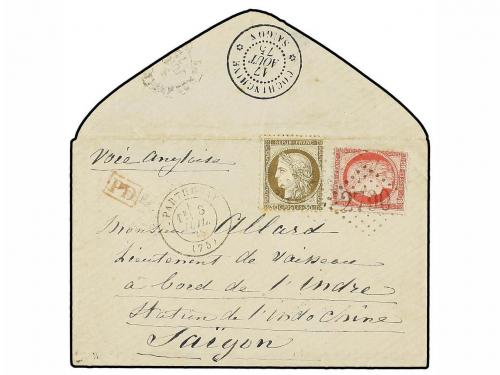 COCHINCHINE
17
AOUT
75
SAIGON
Voie Anglaise
REPUB. FRANC.
PD
PARTHENAY
(75)
2790
Monsieur Allard
Lieutenant de Vaisseau
à bord de l'Indre
Station de l'indo Chine
Saïgon